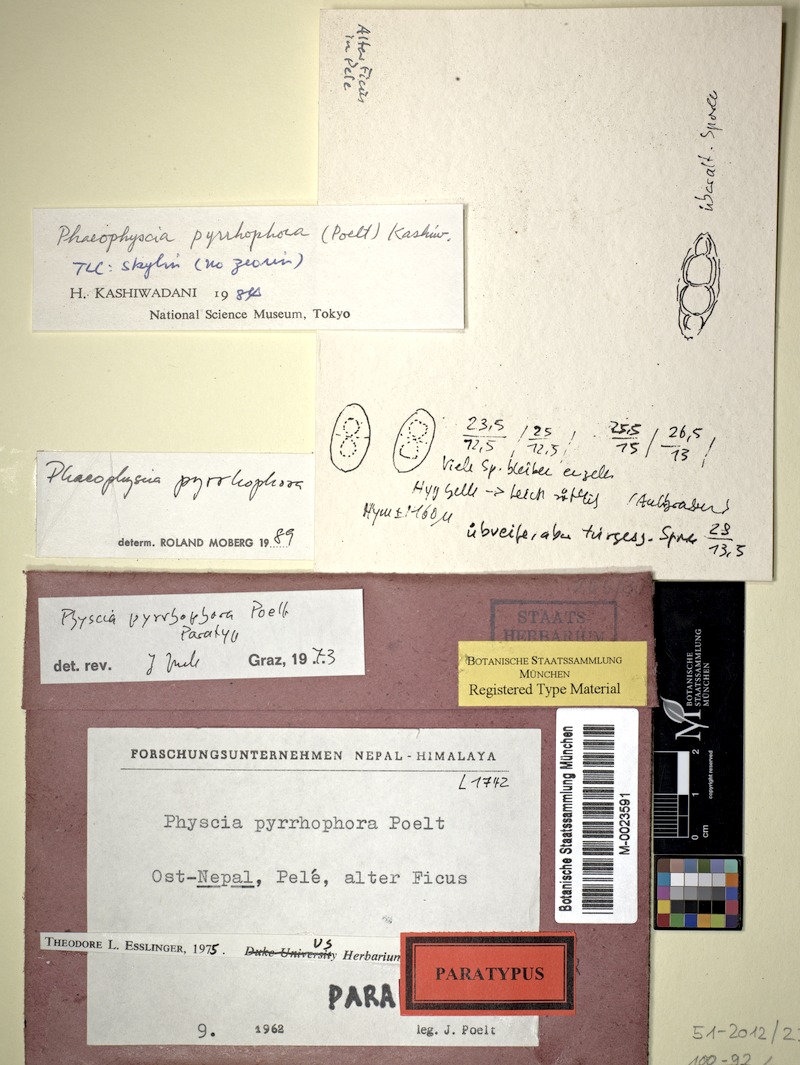 Alter Ficus
in Pele
überalt. Spore
Phaeophyscia pyrrhophora (Poelt) Kashiw.
TLC: skyrin (no zeorin)
H. KASHIWADANI 1984
National Science Museum, Tokyo
23,5/12,5 / 25/12,5 / 25,5/15 / 26,5/13 /
Viele Sp. bleiben einzeln
Hyp helle -> leicht rötlich
Hym ± 160 µ
überreife, aber turgesz. Spore 28/13,5
Phaeophyscia pyrrhophora
determ. ROLAND MOBERG 1989
Physcia pyrrhophora Poelt
Paratyp
det. rev. Graz, 1973
STAATS-
HERBARIUM
BOTANISCHE STAATSSAMMLUNG
MÜNCHEN
Registered Type Material
FORSCHUNGSUNTERNEHMEN NEPAL-HIMALAYA
L1742
Physcia pyrrhophora Poelt
Ost-Nepal, Pelé, alter Ficus
THEODORE L. ESSLINGER, 1975. Duke University US Herbarium
PARATYPUS
PARA
9. 1962 leg. J. Poelt
Botanische Staatssammlung München
M-0023591
BOTANISCHE
STAATSSAMMLUNG
MÜNCHEN
copyright reserved
0 1 2
cm
51-2012/2
100-92